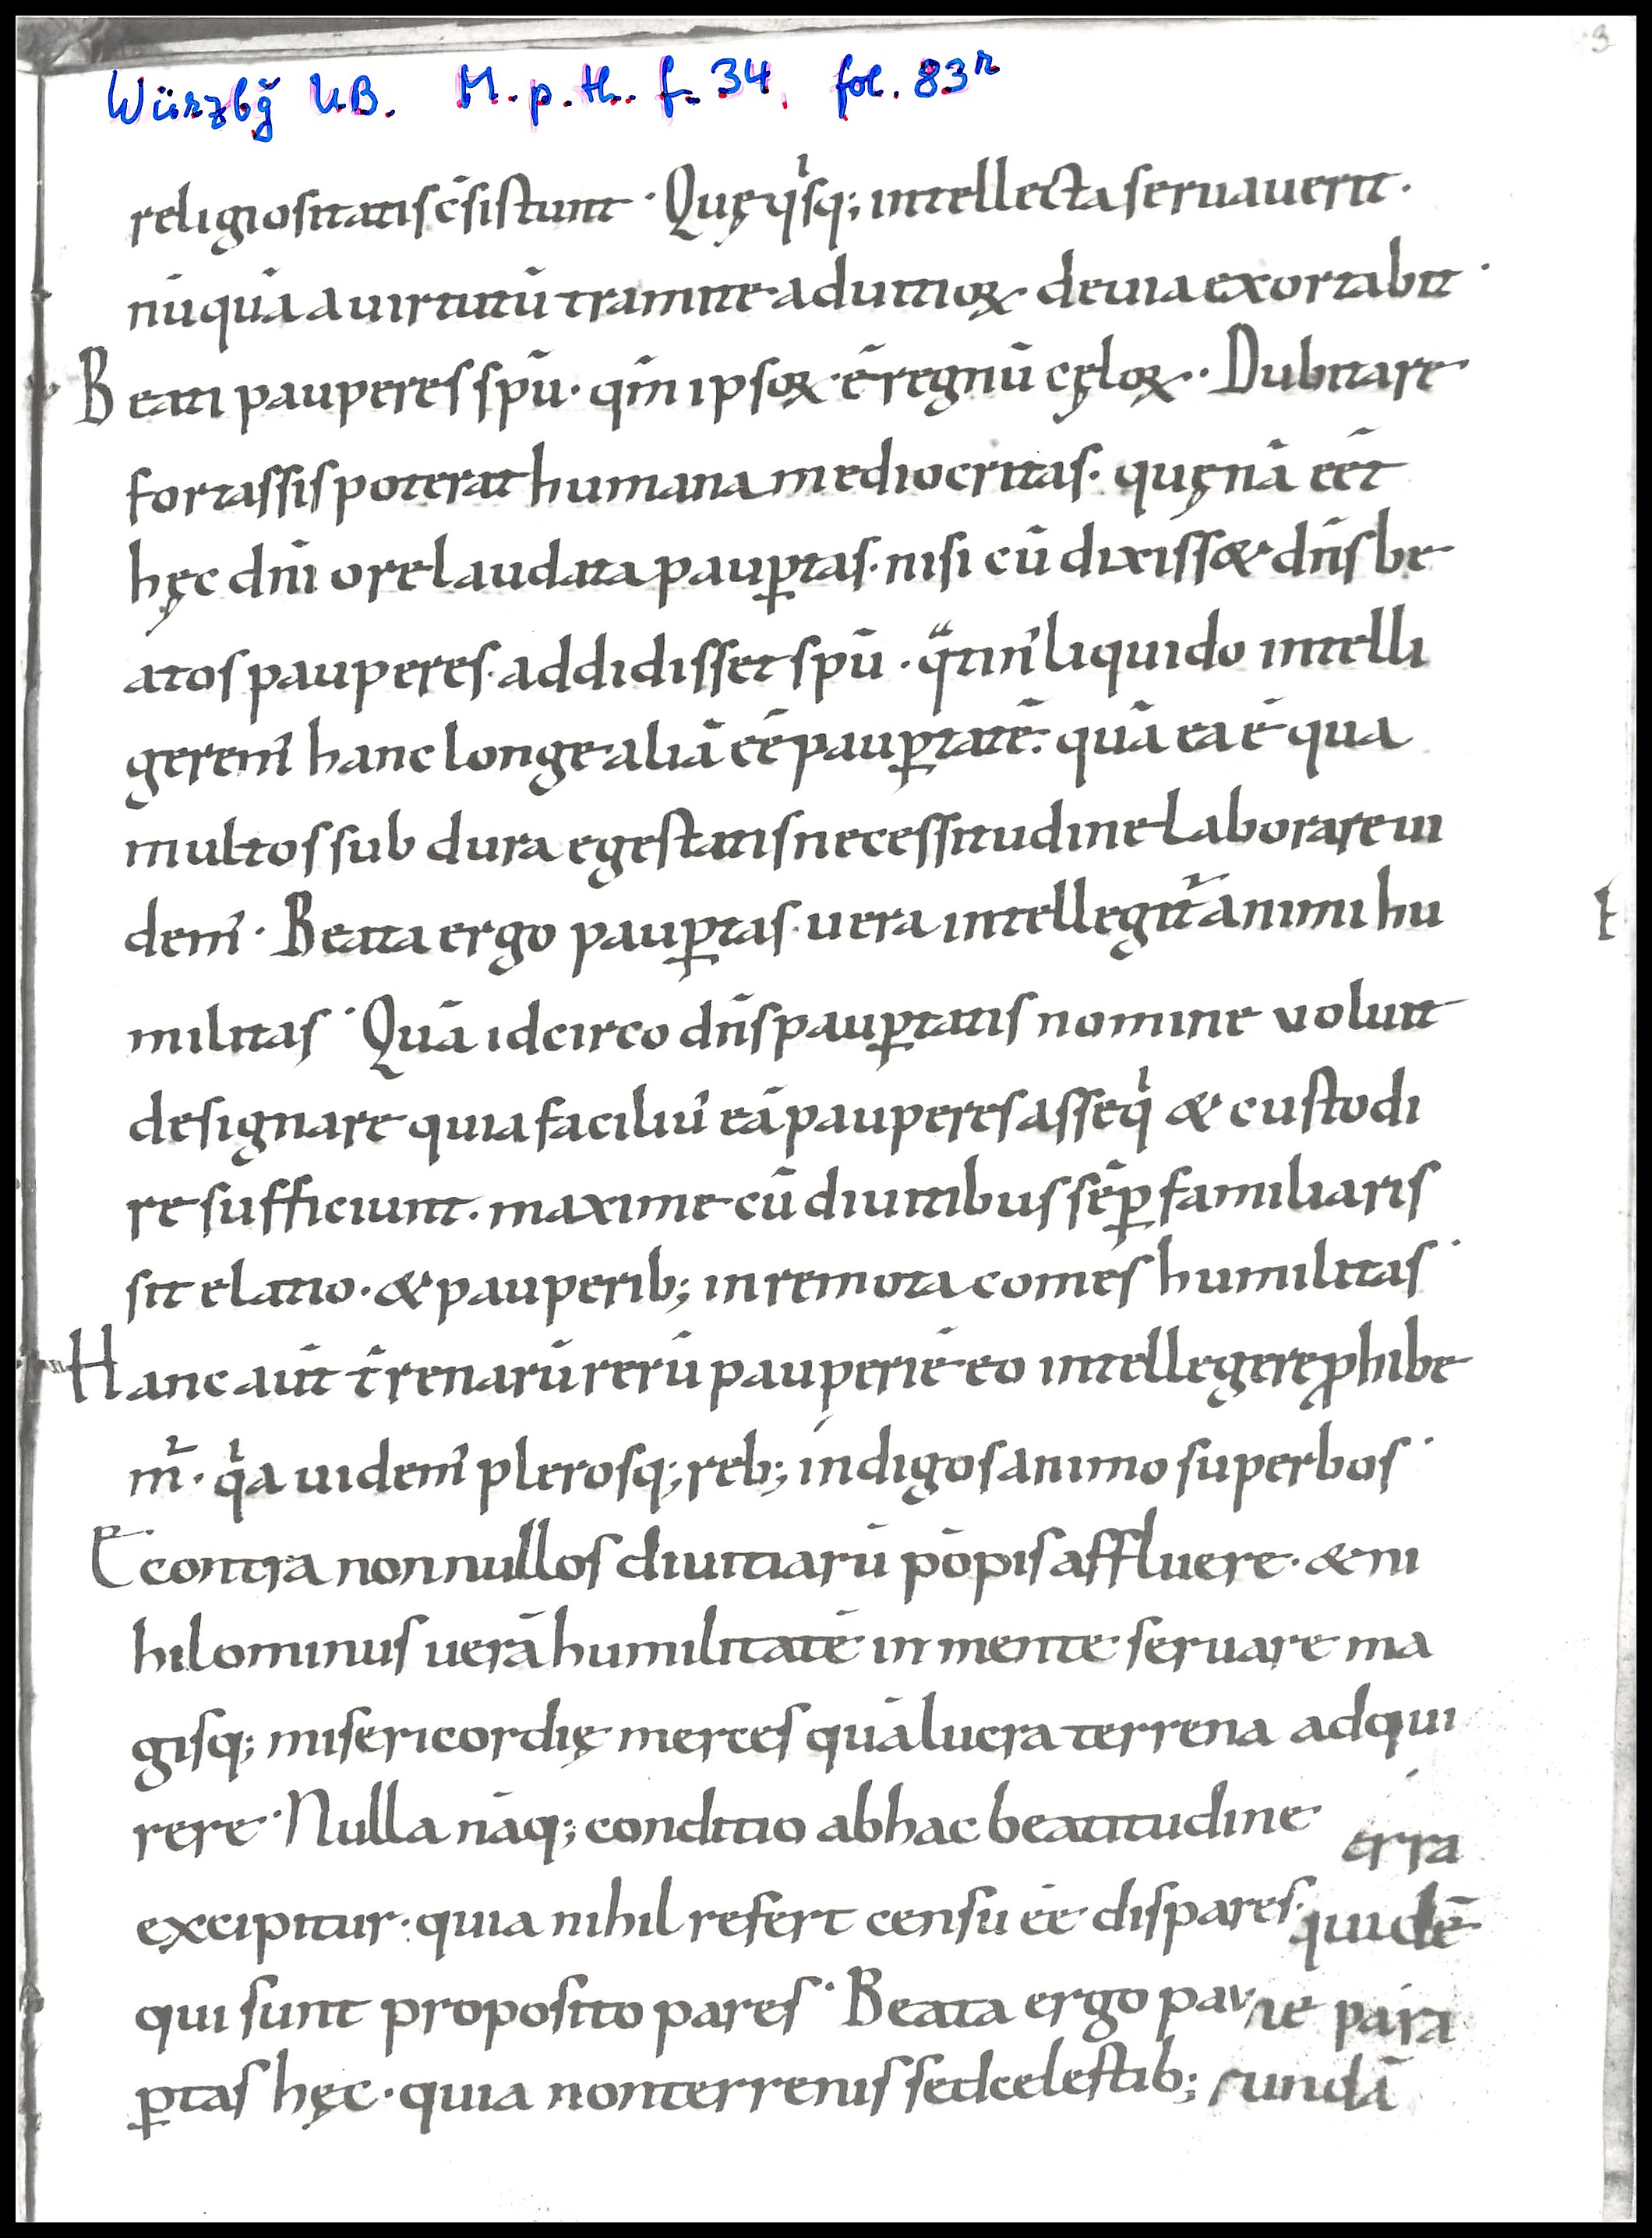 3
Würzbg UB. M. p. th. f. 34, fol. 83r
religiositatis c̄sistunt · Quę qͥsq; intellecta seruauerit ·
nūquā a uirtutū tramite ad uitioꝝ deuia exortabit ·
Beati pauperes sp̄u · qm̄ ipsoꝝ ē regnū cęloꝝ · Dubitare
fortassis poterat humana mediocritas · quęnā eēt
hęc dn̄i ore laudata paup̱tas · nisi cū dixiss& dn̄s be
atos pauperes · addidisset sp̄u · qͣtin' liquido intelli
gerem' hanc longe aliā eē paup̱tatē · quā ea ē qua
multos sub dura egestatis necessitudine laborare ui
dem' · Beata ergo paup̱tas · uera intellegit̃ animi hu
militas · Quā idcirco dn̄s paup̱tatis nomine voluit
designare quia faciliu' eā pauperes asseqͥ & custodi
re sufficiunt · maxime cū diuitibus sēp̱ familiaris
sit elatio · & pauperib; inremota comes humilitas ·
Hanc aūt t̄renarū rerū pauperiē eo intellegere ꝓhibe
m̃ · qͥa uidem' plerosq; reb; indigos animo superbos ·
E contra nonnullos diuitiarū pōpis affluere · & ni
hilominus uerā humilitatē in mente seruare ma
gisq; misericordię merces quā lucra terrena adqui
rere · Nulla nāq; conditio ab hac beatitudine erra
excipitur · quia nihil refert censu eē dispares · quidē
qui sunt proposito pares · Beata ergo pau ne para
p̱tas hęc · quia non terrenis sed celestib; cundā